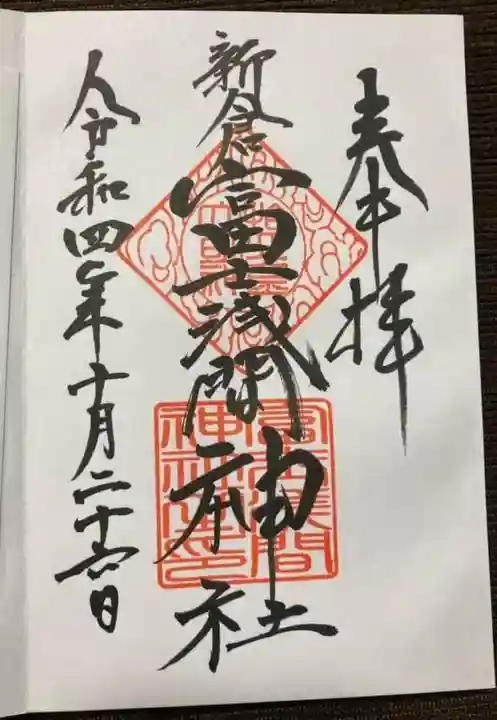 奉拝
新倉富士浅間神社
令和四年十月二十六日
冨士浅間
神社之印